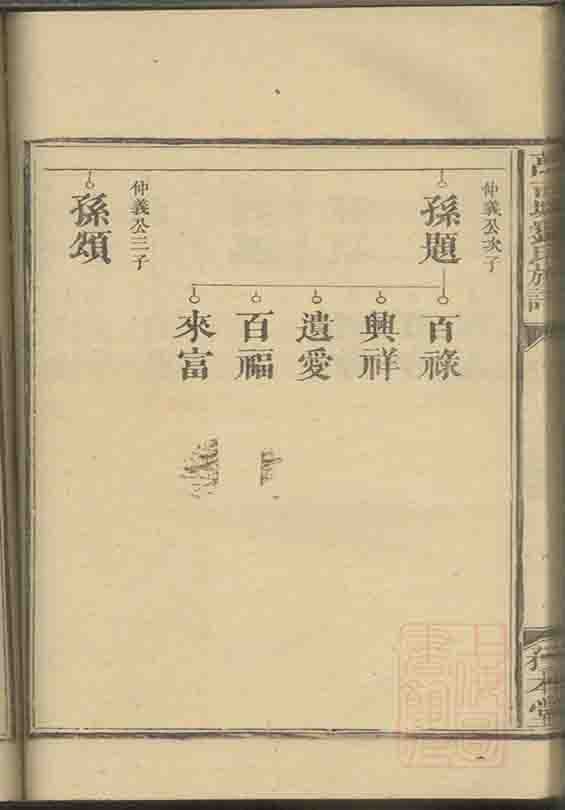 仲義公次子
孫題
百祿
興祥
遺愛
百福
來富
仲義公三子
孫頌
氏族
本堂